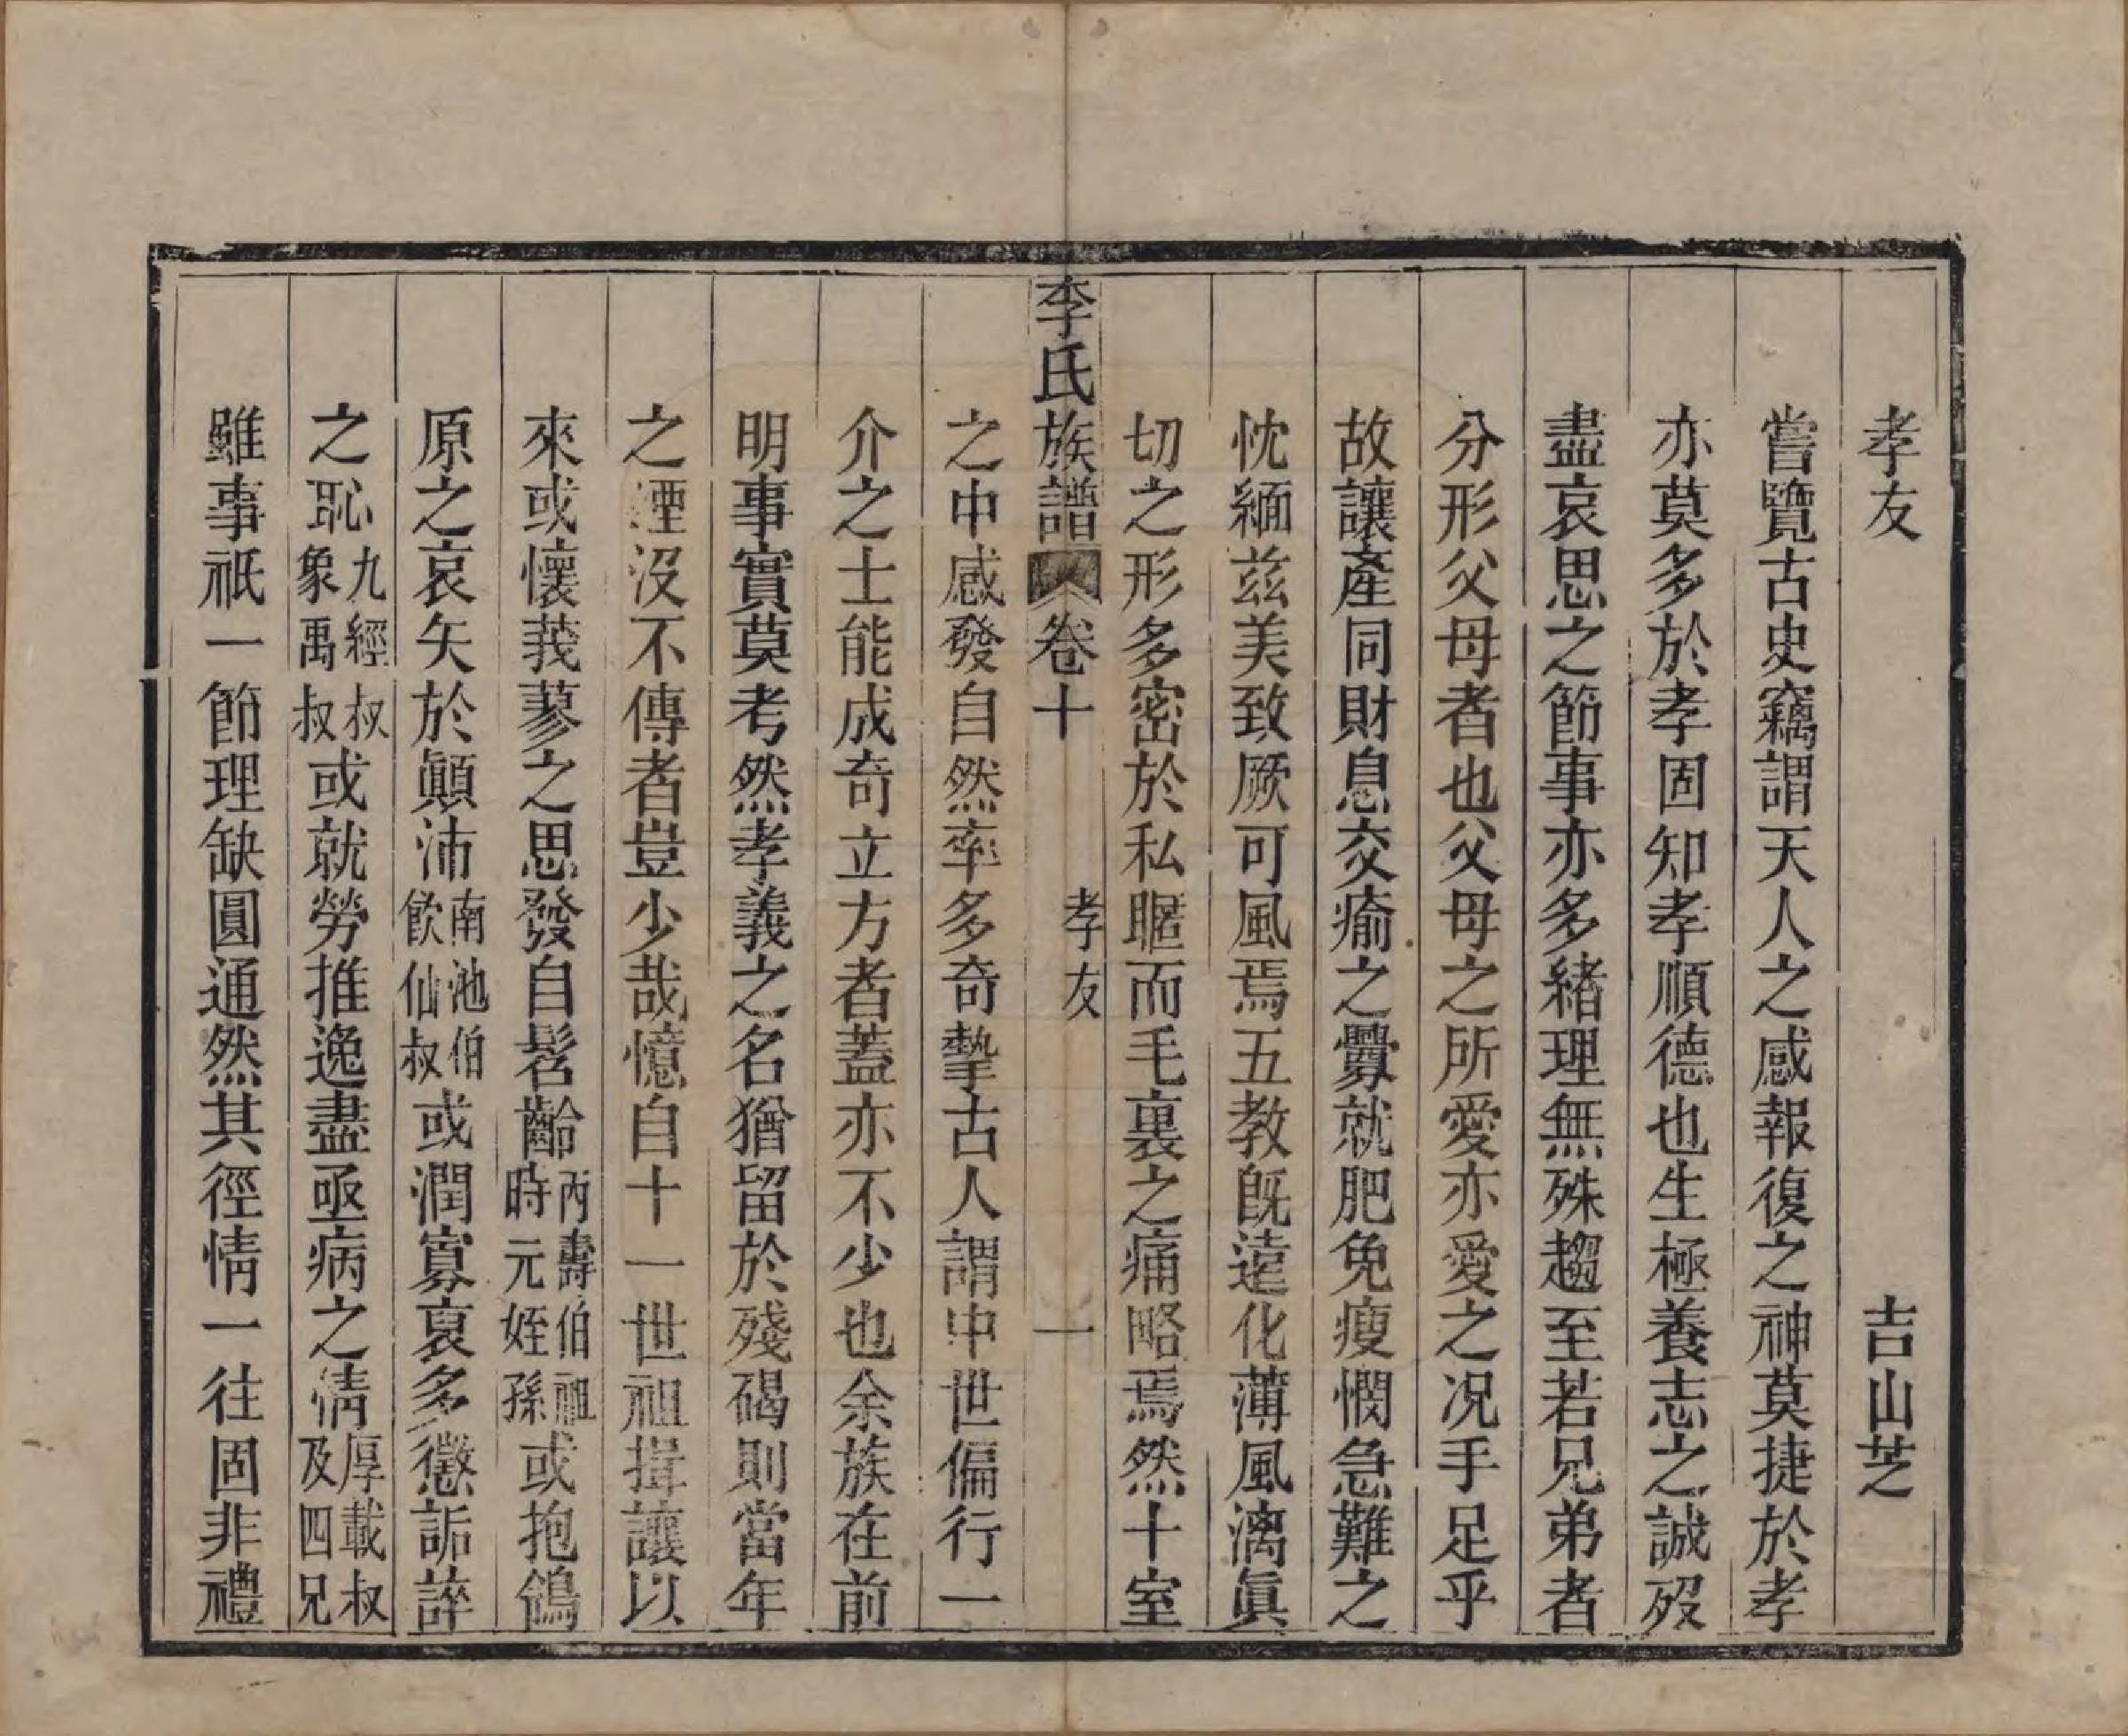 孝友　吉山芝
嘗覽古史竊謂天人之感報復之神莫捷於孝
亦莫多於孝固知孝順德也生極養志之誠歿
盡哀思之節事亦多緒理無殊趨至若兄弟者
分形父母者也父母之所愛亦愛之况手足乎
故讓產同財息交瘉之釁就肥免瘦憫急難之
忱緬茲美致厥可風焉五教旣遠化薄風漓眞
切之形多密於私暱而毛裏之痛略焉然十室
李氏族譜　卷十　孝友　一
之中感發自然率多奇摯古人謂中世偏行一
介之士能成奇立方者蓋亦不少也余族在前
明事實莫考然孝義之名猶留於殘碣則當年
之湮沒不傳者豈少哉憶自十一世祖揖讓以
來或懷莪蓼之思發自髫齡丙壽伯祖時元姪孫或抱鴒
原之哀矢於顚沛南池伯飲仙叔或潤寡裒多懲詬誶
之恥九經叔象禹叔或就勞推逸盡亟病之情厚載叔及四兄
雖事祇一節理缺圓通然其徑情一往固非禮